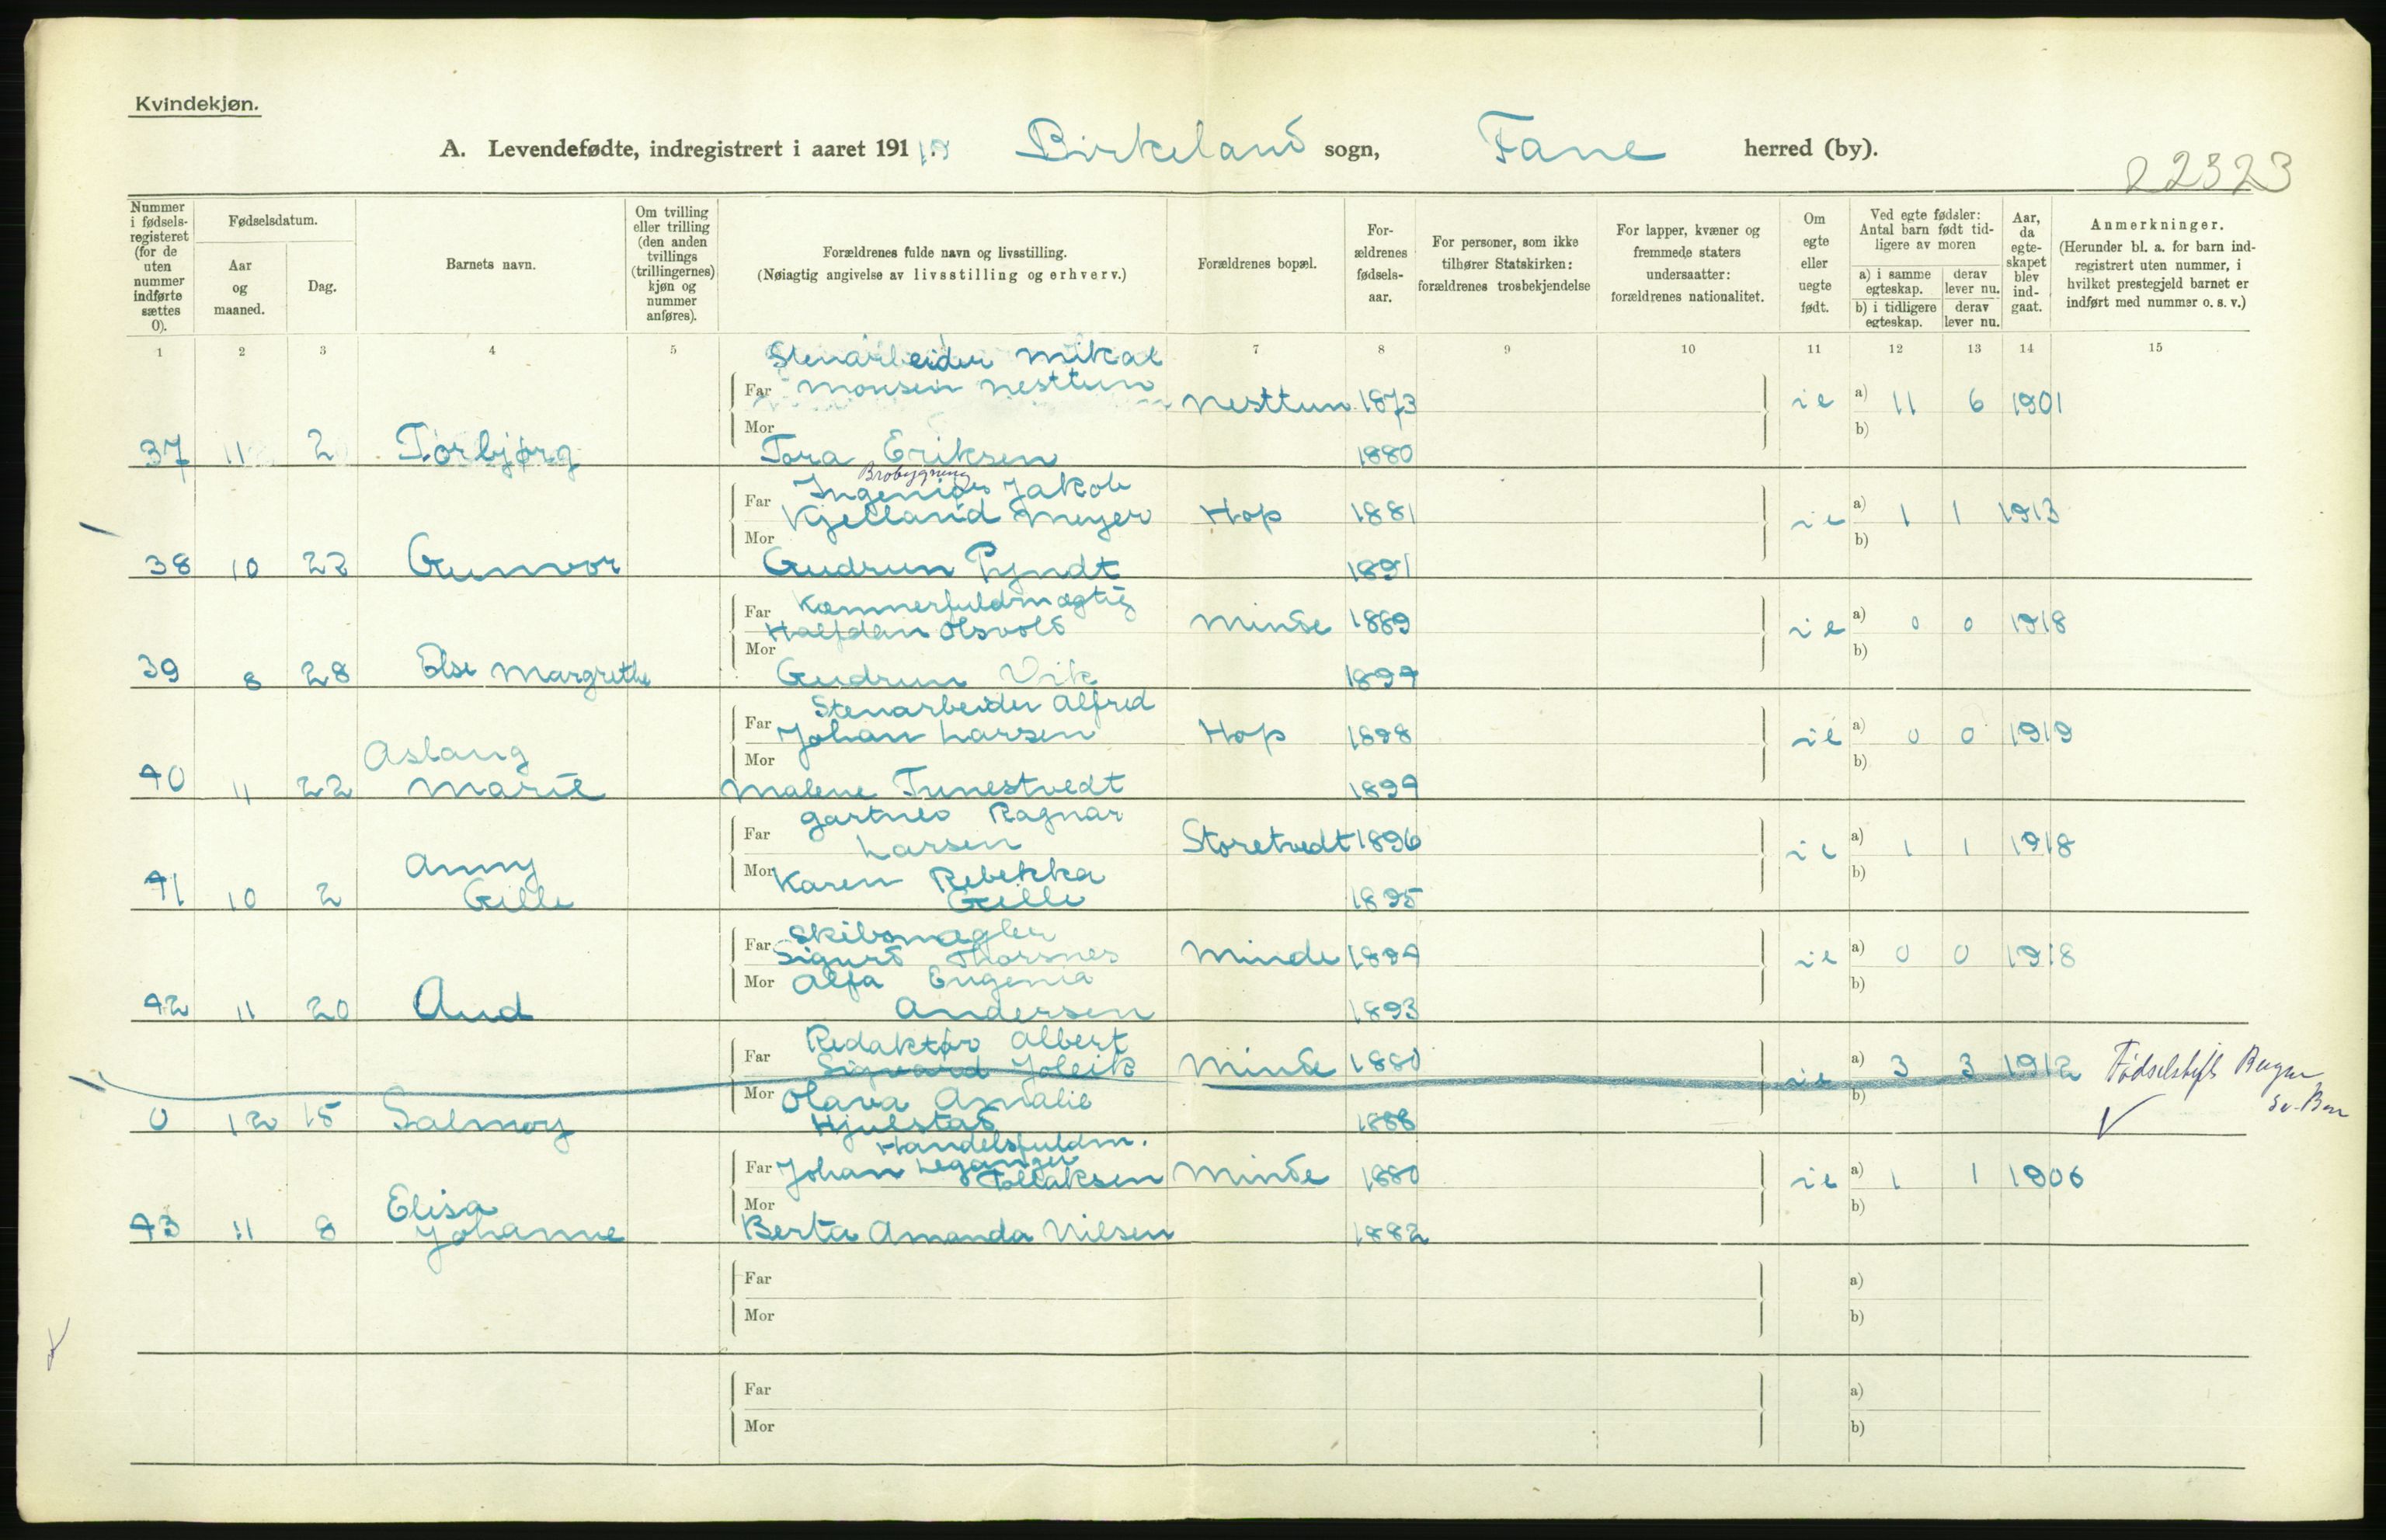 Kvindekjøn.
A. Levendefødte, indregistrert i aaret 191 Birkeland sogn, Fane herred (by).
22323
Nummer i fødsels-registeret (for de uten nummer indførte sættes 0).
Fødselsdatum.
Aar og maaned.
Dag.
Barnets navn.
Om tvilling eller trilling (den anden tvillings (trillingernes) kjøn og nummer anføres).
Forældrenes fulde navn og livsstilling.
(Nøiagtig angivelse av livsstilling og erhverv.)
Forældrenes bopæl.
For-ældrenes fødsels-aar.
For personer, som ikke tilhører Statskirken: forældrenes trosbekjendelse
For lapper, kvæner og fremmede staters undersaatter: forældrenes nationalitet.
Om egte eller uegte født.
Ved egte fødsler: Antal barn født tid-ligere av moren
a) i samme egteskap. derav lever nu.
b) i tidligere egteskap. derav lever nu.
Aar, da egte-skapet blev ind-gaat.
Anmerkninger.
(Herunder bl. a. for barn ind-registrert uten nummer, i hvilket prestegjeld barnet er indført med nummer o. s. v.)
1 2 3 4 5 7 8 9 10 11 12 13 14 15
Stenarbeider Mikal
Far Monsen Nesttun Nesttun 1873 ie a) 11 6 1901
Mor b)
37 11 2 Torbjørg Tora Eriksen 1880
Brobygning
Ingeniør Jakob
Far Kjelland Meyer Hop 1881 ie a) 1 1 1913
Mor b)
38 10 22 Gunvor Gudrun Pyndt 1891
Far Kæmnerfuldmægtig
Halfdan Olsvold Minde 1889 ie a) 0 0 1918
Mor b)
39 8 28 Else Margrethe Gudrun Vik 1894
Stenarbeider Alfred
Far Johan Larsen Hop 1898 ie a) 0 0 1919
Mor b)
Aslaug
40 11 22 Marie Malene Tunestvedt 1899
gartner Ragnar
Far Larsen Storetvedt 1896 ie a) 1 1 1918
Anny Mor Karen Rebekka b)
41 10 2 Gille Gille 1895
Skibsmægler
Far Sigurd Thorsnes Minde 1894 ie a) 0 0 1918
Mor Alfa Eugenia b)
42 11 20 Aud Andersen 1893
Redaktør Albert
Far Sigvard Joleik Minde 1880 ie a) 3 3 1912 Fødselstift Bergen
Mor Olava Amalie b)
0 12 15 Salmøy Hjulstad 1888
Handelsfuldm.
Far Johan Leganger
Tollaksen Minde 1880 ie a) 1 1 1906
Elisa Mor b)
43 11 8 Johanne Berta Amanda Nilsen 1882
Far a)
Mor b)
Far a)
Mor b)